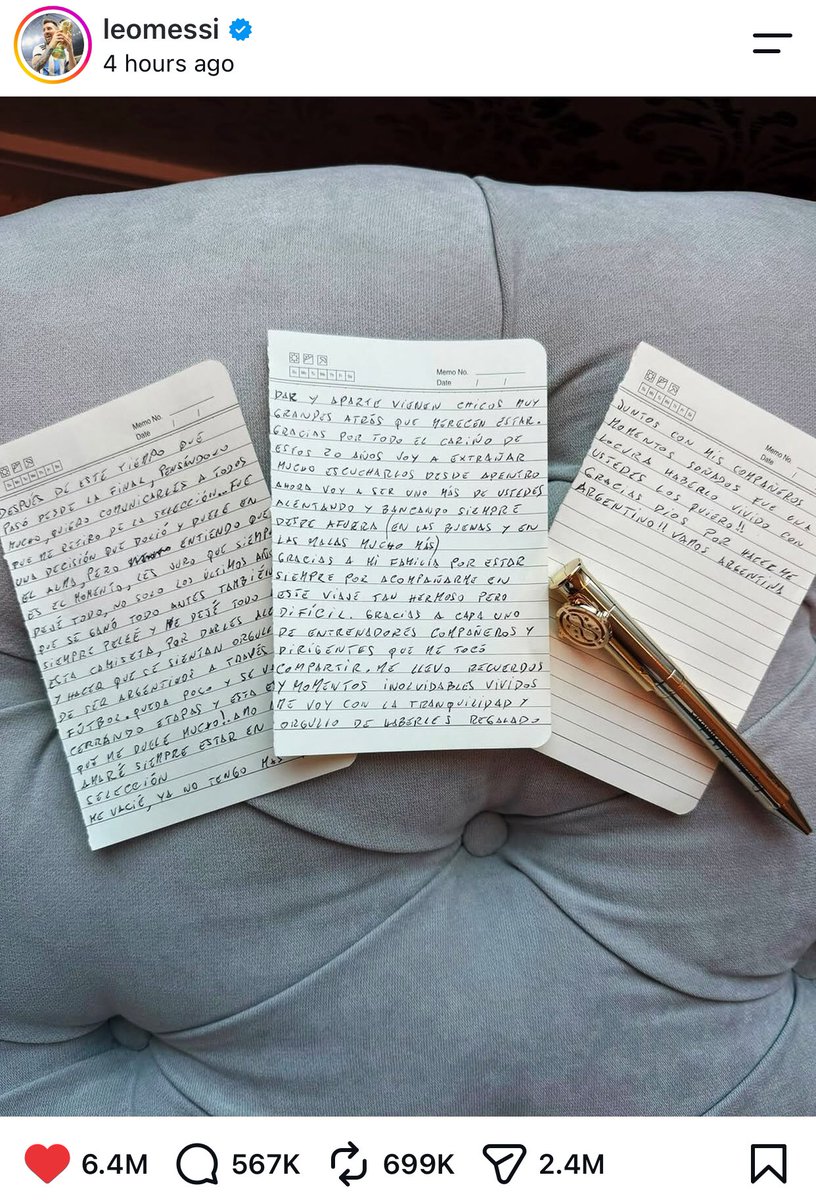 leomessi
4 hours ago
Memo No.
Date / /
DESPUÉS DE ESTE TIEMPO QUE
PASÓ DESDE LA FINAL, PENSÁNDOLO
MUCHO, QUIERO COMUNICARLES A TODOS
QUE ME RETIRO DE LA SELECCIÓN... FUE
UNA DECISIÓN QUE DOLIÓ Y DUELE EN
EL ALMA, PERO ENTIENDO QUE
ES EL MOMENTO. LES JURO QUE SIEMPRE
DEJÉ TODO, NO SOLO LOS ÚLTIMOS AÑOS
QUE SE GANÓ TODO ANTES TAMBIÉN
SIEMPRE PELEÉ Y ME DEJÉ TODO
ESTA CAMISETA, POR DARLES
Y HACER QUE SE SIENTAN
DE SER ARGENTINOS A TRAVÉS
FÚTBOL. QUEDA POCO Y SE
CERRANDO ETAPAS Y ESTA
QUE ME DUELE MUCHO!. AMO
AMARÉ SIEMPRE ESTAR EN
SELECCIÓN
ME VACIÉ, YA NO TENGO MÁS
Memo No.
Date / /
DAR Y APARTE VIENEN CHICOS MUY
GRANDES ATRÁS QUE MERECEN ESTAR.
GRACIAS POR TODO EL CARIÑO DE
ESTOS 20 AÑOS VOY A EXTRAÑAR
MUCHO ESCUCHARLOS DESDE ADENTRO
AHORA VOY A SER UNO MÁS DE USTEDES
ALENTANDO Y BANCANDO SIEMPRE
DESDE AFUERA (EN LAS BUENAS Y EN
LAS MALAS MUCHO MÁS)
GRACIAS A MI FAMILIA POR ESTAR
SIEMPRE POR ACOMPAÑARME EN
ESTE VIAJE TAN HERMOSO PERO
DIFÍCIL. GRACIAS A CADA UNO
DE ENTRENADORES COMPAÑEROS Y
DIRIGENTES QUE ME TOCÓ
COMPARTIR. ME LLEVO RECUERDOS
Y MOMENTOS INOLVIDABLES VIVIDOS
ME VOY CON LA TRANQUILIDAD Y
ORGULLO DE HABERLES REGALADO
Memo No.
Date
JUNTOS CON MIS COMPAÑEROS
MOMENTOS SOÑADOS FUE UNA
LOCURA HABERLO VIVIDO CON
USTEDES LOS QUIERO!!
GRACIAS DIOS POR HACERME
ARGENTINO!! VAMOS ARGENTINA
6.4M 567K 699K 2.4M